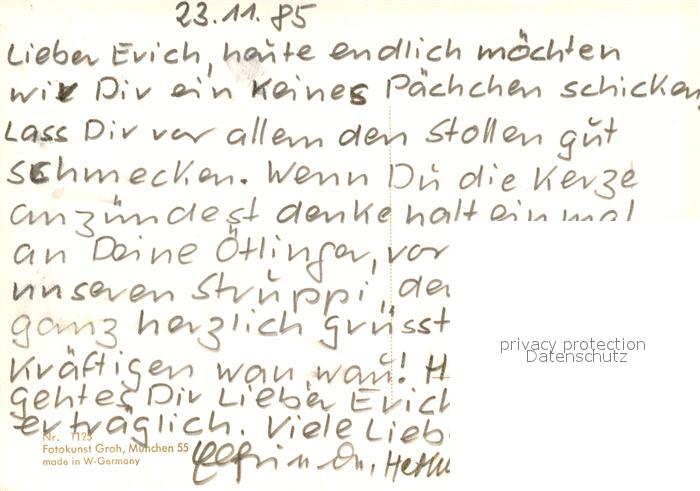 23.11.85
Lieber Erich, haute endlich möchten
wir Dir ein keines Pächchen schicken,
Lass Dir vor allem den Stollen gut
schmecken. Wenn Du die Kerze
anzündest denke halt einmal
an Deine Ötlinger, vor
unseren Struppi, de
ganz herzlich grüsst
kräftigen wau, wau! H
gehtes Dir Lieber Erich
erträglich. Viele Lieb
privacy protection
Datenschutz
Nr. 1125
Fotokunst Groh, München 55
made in W-Germany